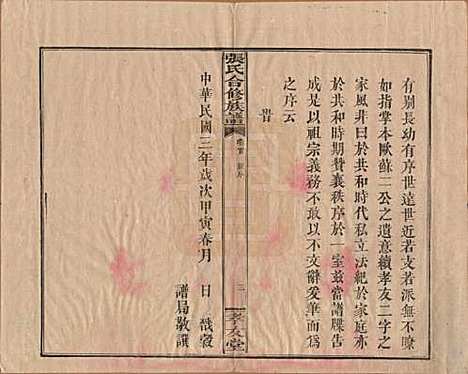 有別長幼有序世遠世近若支若派無不明
如指掌本歐蘇二公之遺意續孝友二字之
家風非曰於共和時代私立法紀於家庭亦
於共和時期贊襄秩序於一室茲當譜牒告
成是以祖宗義務不敢以不文辭爰筆而為
之序云
旹
中華民國三年歲次甲寅春月 日 戩穀
譜局敬譔
張氏合修族譜
三
孝友堂